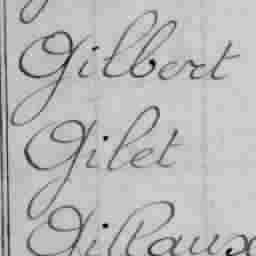 Gilbert
Gilet
Gillaux